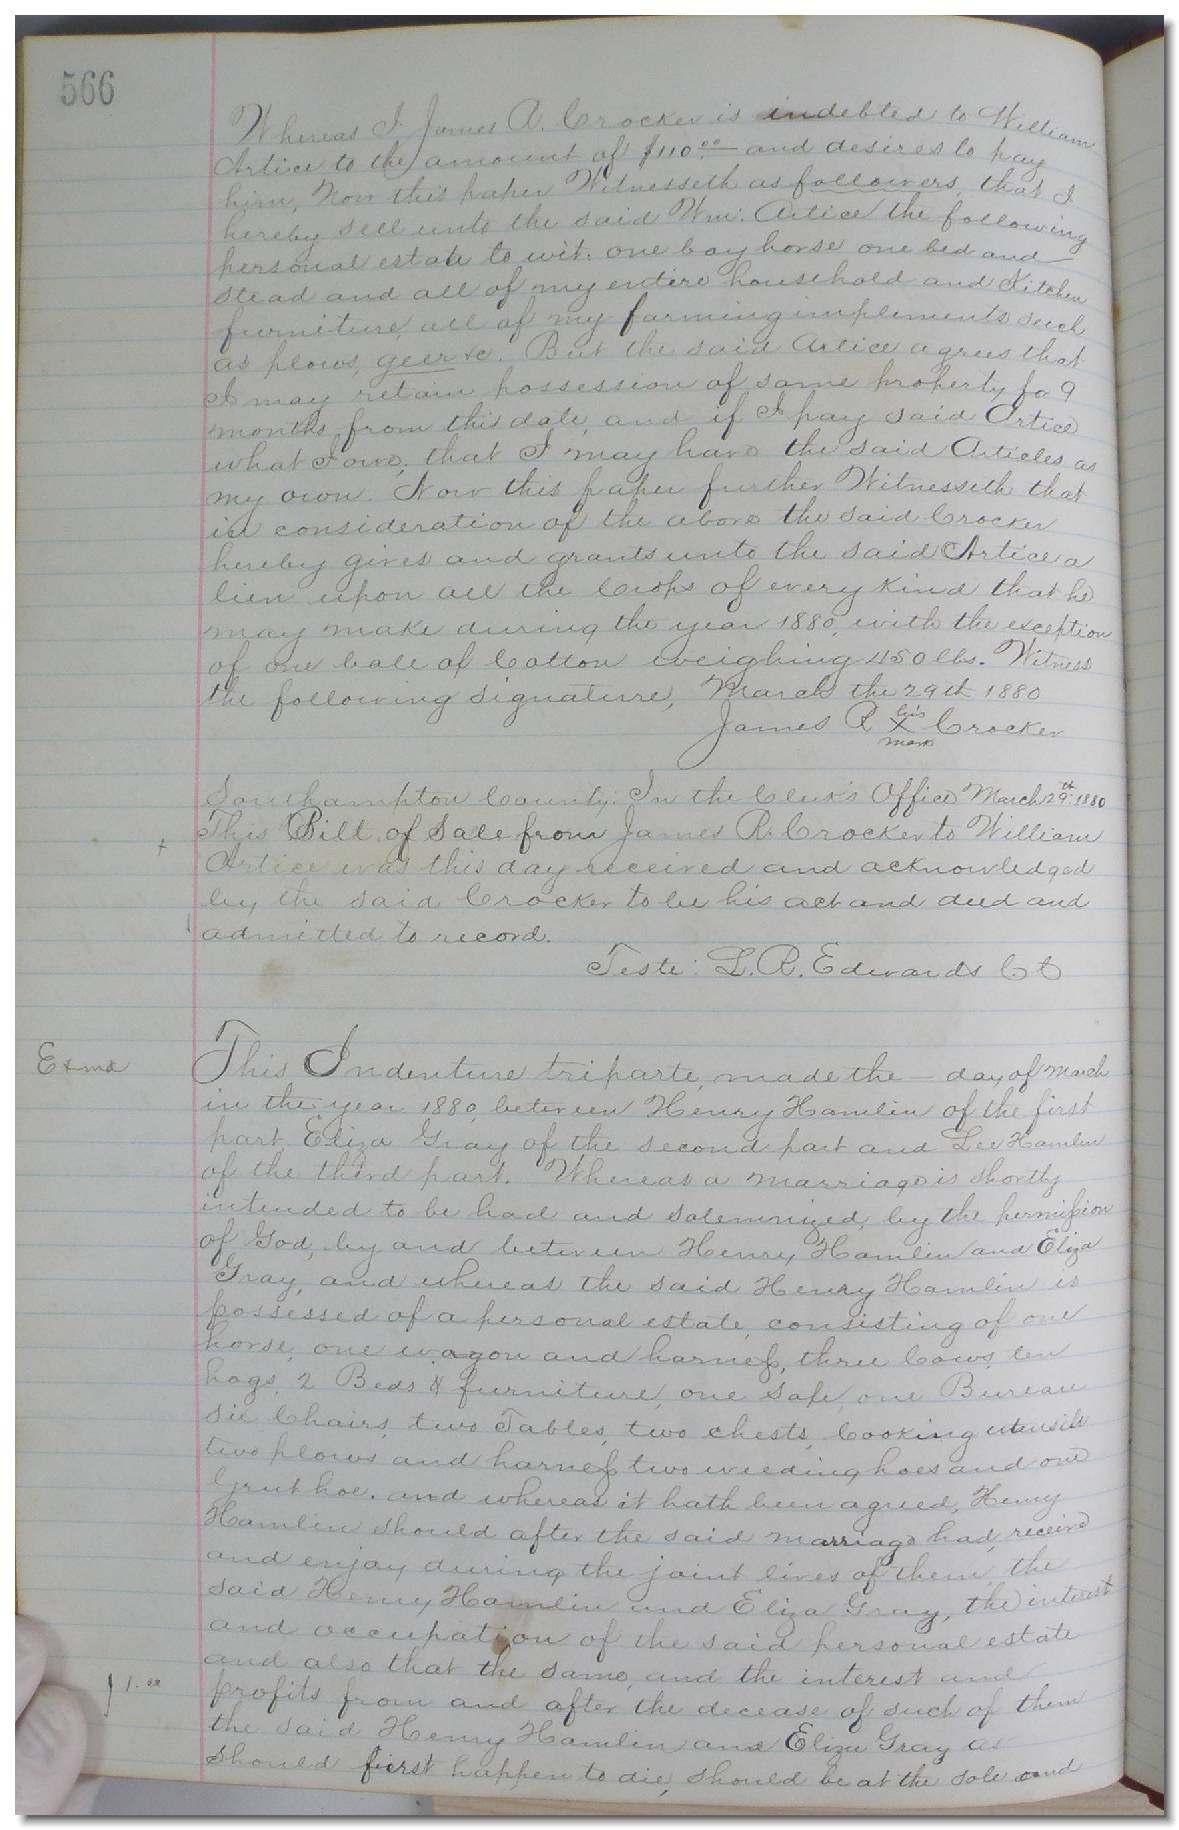 566
Whereas I James R. Crocker is indebted to William
Artice to the amount of $110.00 and desires to pay
him, Now this paper Witnesseth as followers, that I
hereby sell unto the said Wm. Artice the following
personal estate to wit: one bay horse one bed and
stead and all of my entire household and Kitchen
furniture, all of my farming implements such
as plows, geer &c. But the said Artice agrees that
I may retain possession of same property fo 9
months from this date, and if I pay said Artice
what I owe, that I may have the said Articles as
my own. Now this paper further Witnesseth that
in consideration of the above the said Crocker
hereby gives and grants unto the said Artice a
lien upon all the Crops of every Kind that he
may make during the year 1880, with the exception
of one bale of Cotton weighing 450 lbs. Witness
the following signature, March the 29th 1880
James R his X mark Crocker
Southampton County: In the Clerk's Office March 29th 1880
This Bill of Sale from James R. Crocker to William
Artice was this day received and acknowledged
by the said Crocker to be his act and deed and
admitted to record.
Teste: L. R. Edwards CC
Exmd
This Indenture triparte, made the — day of March
in the year 1880, between Henry Hamlin of the first
part, Eliza Gray of the second part and Lee Hamlin
of the third part. Whereas a marriage is shortly
intended to be had and solemnized, by the permission
of God, by and between Henry Hamlin and Eliza
Gray, and whereas the said Henry Hamlin is
possessed of a personal estate, consisting of one
horse, one wagon and harness, three Cows, ten
hogs, 2 Beds & furniture, one Safe, one Bureau
six Chairs, two Tables, two chests, Cooking utensils
two plows and harness two weeding hoes and one
Grub hoe. and whereas it hath been agreed, Henry
Hamlin should after the said marriage had, receive
and enjoy during the joint lives of them, the
said Henry Hamlin and Eliza Gray, the interest
and occupation of the said personal estate
and also that the same, and the interest and
$1.00
profits from and after the decease of such of them
the said Henry Hamlin and Eliza Gray as
should fierst happen to die, should be at the sole and